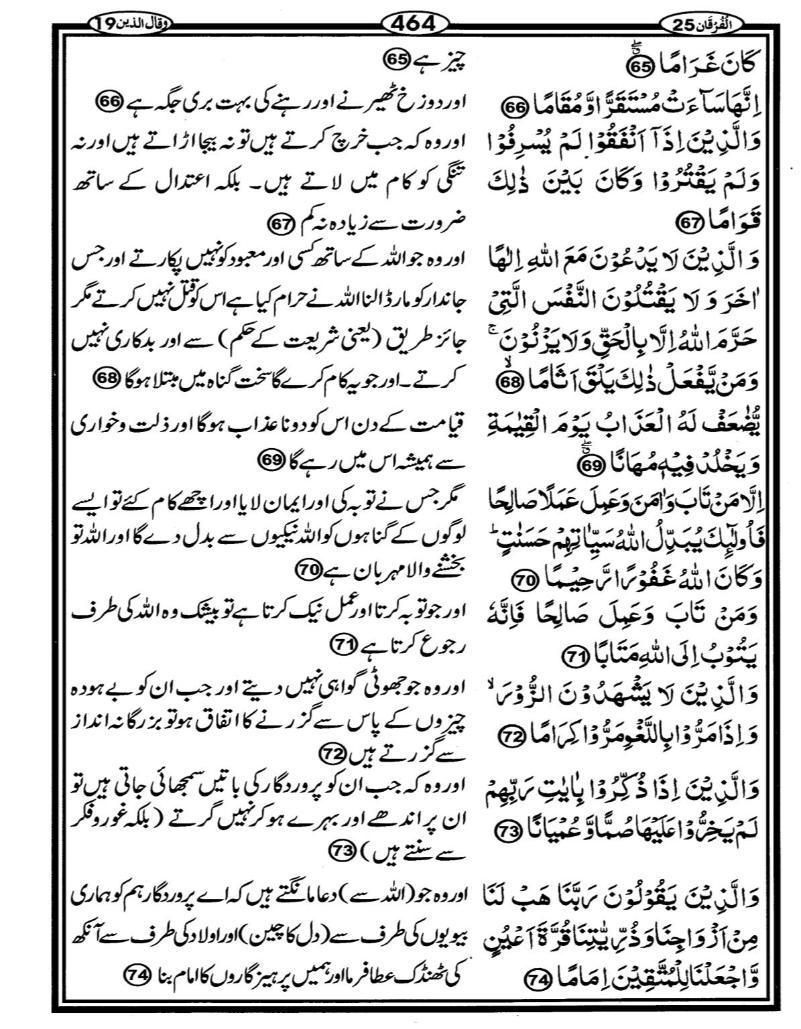 الفُرقَان 25
464
وقال الذین 19
كَانَ غَرَامًا ۖ 65
اِنَّهَا سَآءَتْ مُسْتَقَرًّا وَّ مُقَامًا 66
وَالَّذِيْنَ اِذَآ اَنْفَقُوْا لَمْ يُسْرِفُوْا
وَلَمْ يَقْتُرُوْا وَكَانَ بَيْنَ ذٰلِكَ
قَوَامًا 67
وَ الَّذِيْنَ لَا يَدْعُوْنَ مَعَ اللّٰهِ اِلٰهًا
اٰخَرَ وَ لَا يَقْتُلُوْنَ النَّفْسَ الَّتِيْ
حَرَّمَ اللّٰهُ اِلَّا بِالْحَقِّ وَلَا يَزْنُوْنَ ۚ
وَمَنْ يَّفْعَلْ ذٰلِكَ يَلْقَ اَثَامًا ۙ 68
يُّضٰعَفْ لَهُ الْعَذَابُ يَوْمَ الْقِيٰمَةِ
وَيَخْلُدْ فِيْهٖ مُهَانًا ۖ 69
اِلَّا مَنْ تَابَ وَاٰمَنَ وَعَمِلَ عَمَلًا صَالِحًا
فَاُولٰٓئِكَ يُبَدِّلُ اللّٰهُ سَيِّاٰتِهِمْ حَسَنٰتٍ ؕ
وَكَانَ اللّٰهُ غَفُوْرًا رَّحِيْمًا 70
وَمَنْ تَابَ وَعَمِلَ صَالِحًا فَاِنَّهٗ
يَتُوْبُ اِلَى اللّٰهِ مَتَابًا 71
وَالَّذِيْنَ لَا يَشْهَدُوْنَ الزُّوْرَ ۙ
وَاِذَا مَرُّوْا بِاللَّغْوِ مَرُّوْا كِرَامًا 72
وَالَّذِيْنَ اِذَا ذُكِّرُوْا بِاٰيٰتِ رَبِّهِمْ
لَمْ يَخِرُّوْا عَلَيْهَا صُمًّا وَّعُمْيَانًا 73
وَالَّذِيْنَ يَقُوْلُوْنَ رَبَّنَا هَبْ لَنَا
مِنْ اَزْوَاجِنَا وَذُرِّيّٰتِنَا قُرَّةَ اَعْيُنٍ
وَّاجْعَلْنَا لِلْمُتَّقِيْنَ اِمَامًا 74
چیز ہے 65
اور دوزخ ٹھیرنے اور رہنے کی بہت بری جگہ ہے 66
اور وہ کہ جب خرچ کرتے ہیں تو نہ بیجا اڑاتے ہیں اور نہ
تنگی کو کام میں لاتے ہیں۔ بلکہ اعتدال کے ساتھ
ضرورت سے زیادہ نہ کم 67
اور وہ جو اللہ کے ساتھ کسی اور معبود کو نہیں پکارتے اور جس
جاندار کو مار ڈالنا اللہ نے حرام کیا ہے اس کو قتل نہیں کرتے مگر
جائز طریق (یعنی شریعت کے حکم) سے اور بدکاری نہیں
کرتے۔ اور جو یہ کام کرے گا سخت گناہ میں مبتلا ہوگا 68
قیامت کے دن اس کو دونا عذاب ہوگا اور ذلت و خواری
سے ہمیشہ اس میں رہے گا 69
مگر جس نے توبہ کی اور ایمان لایا اور اچھے کام کئے تو ایسے
لوگوں کے گناہوں کو اللہ نیکیوں سے بدل دے گا اور اللہ تو
بخشنے والا مہربان ہے 70
اور جو توبہ کرتا اور عمل نیک کرتا ہے تو بیشک وہ اللہ کی طرف
رجوع کرتا ہے 71
اور وہ جو جھوٹی گواہی نہیں دیتے اور جب ان کو بے ہودہ
چیزوں کے پاس سے گزرنے کا اتفاق ہو تو بزرگانہ انداز
سے گزرتے ہیں 72
اور وہ کہ جب ان کو پروردگار کی باتیں سمجھائی جاتی ہیں تو
ان پر اندھے اور بہرے ہو کر نہیں گرتے (بلکہ غور و فکر
سے سنتے ہیں) 73
اور وہ جو (اللہ سے) دعا مانگتے ہیں کہ اے پروردگار ہم کو ہماری
بیویوں کی طرف سے (دل کا چین) اور اولاد کی طرف سے آنکھ
کی ٹھنڈک عطا فرما اور ہمیں پرہیزگاروں کا امام بنا 74